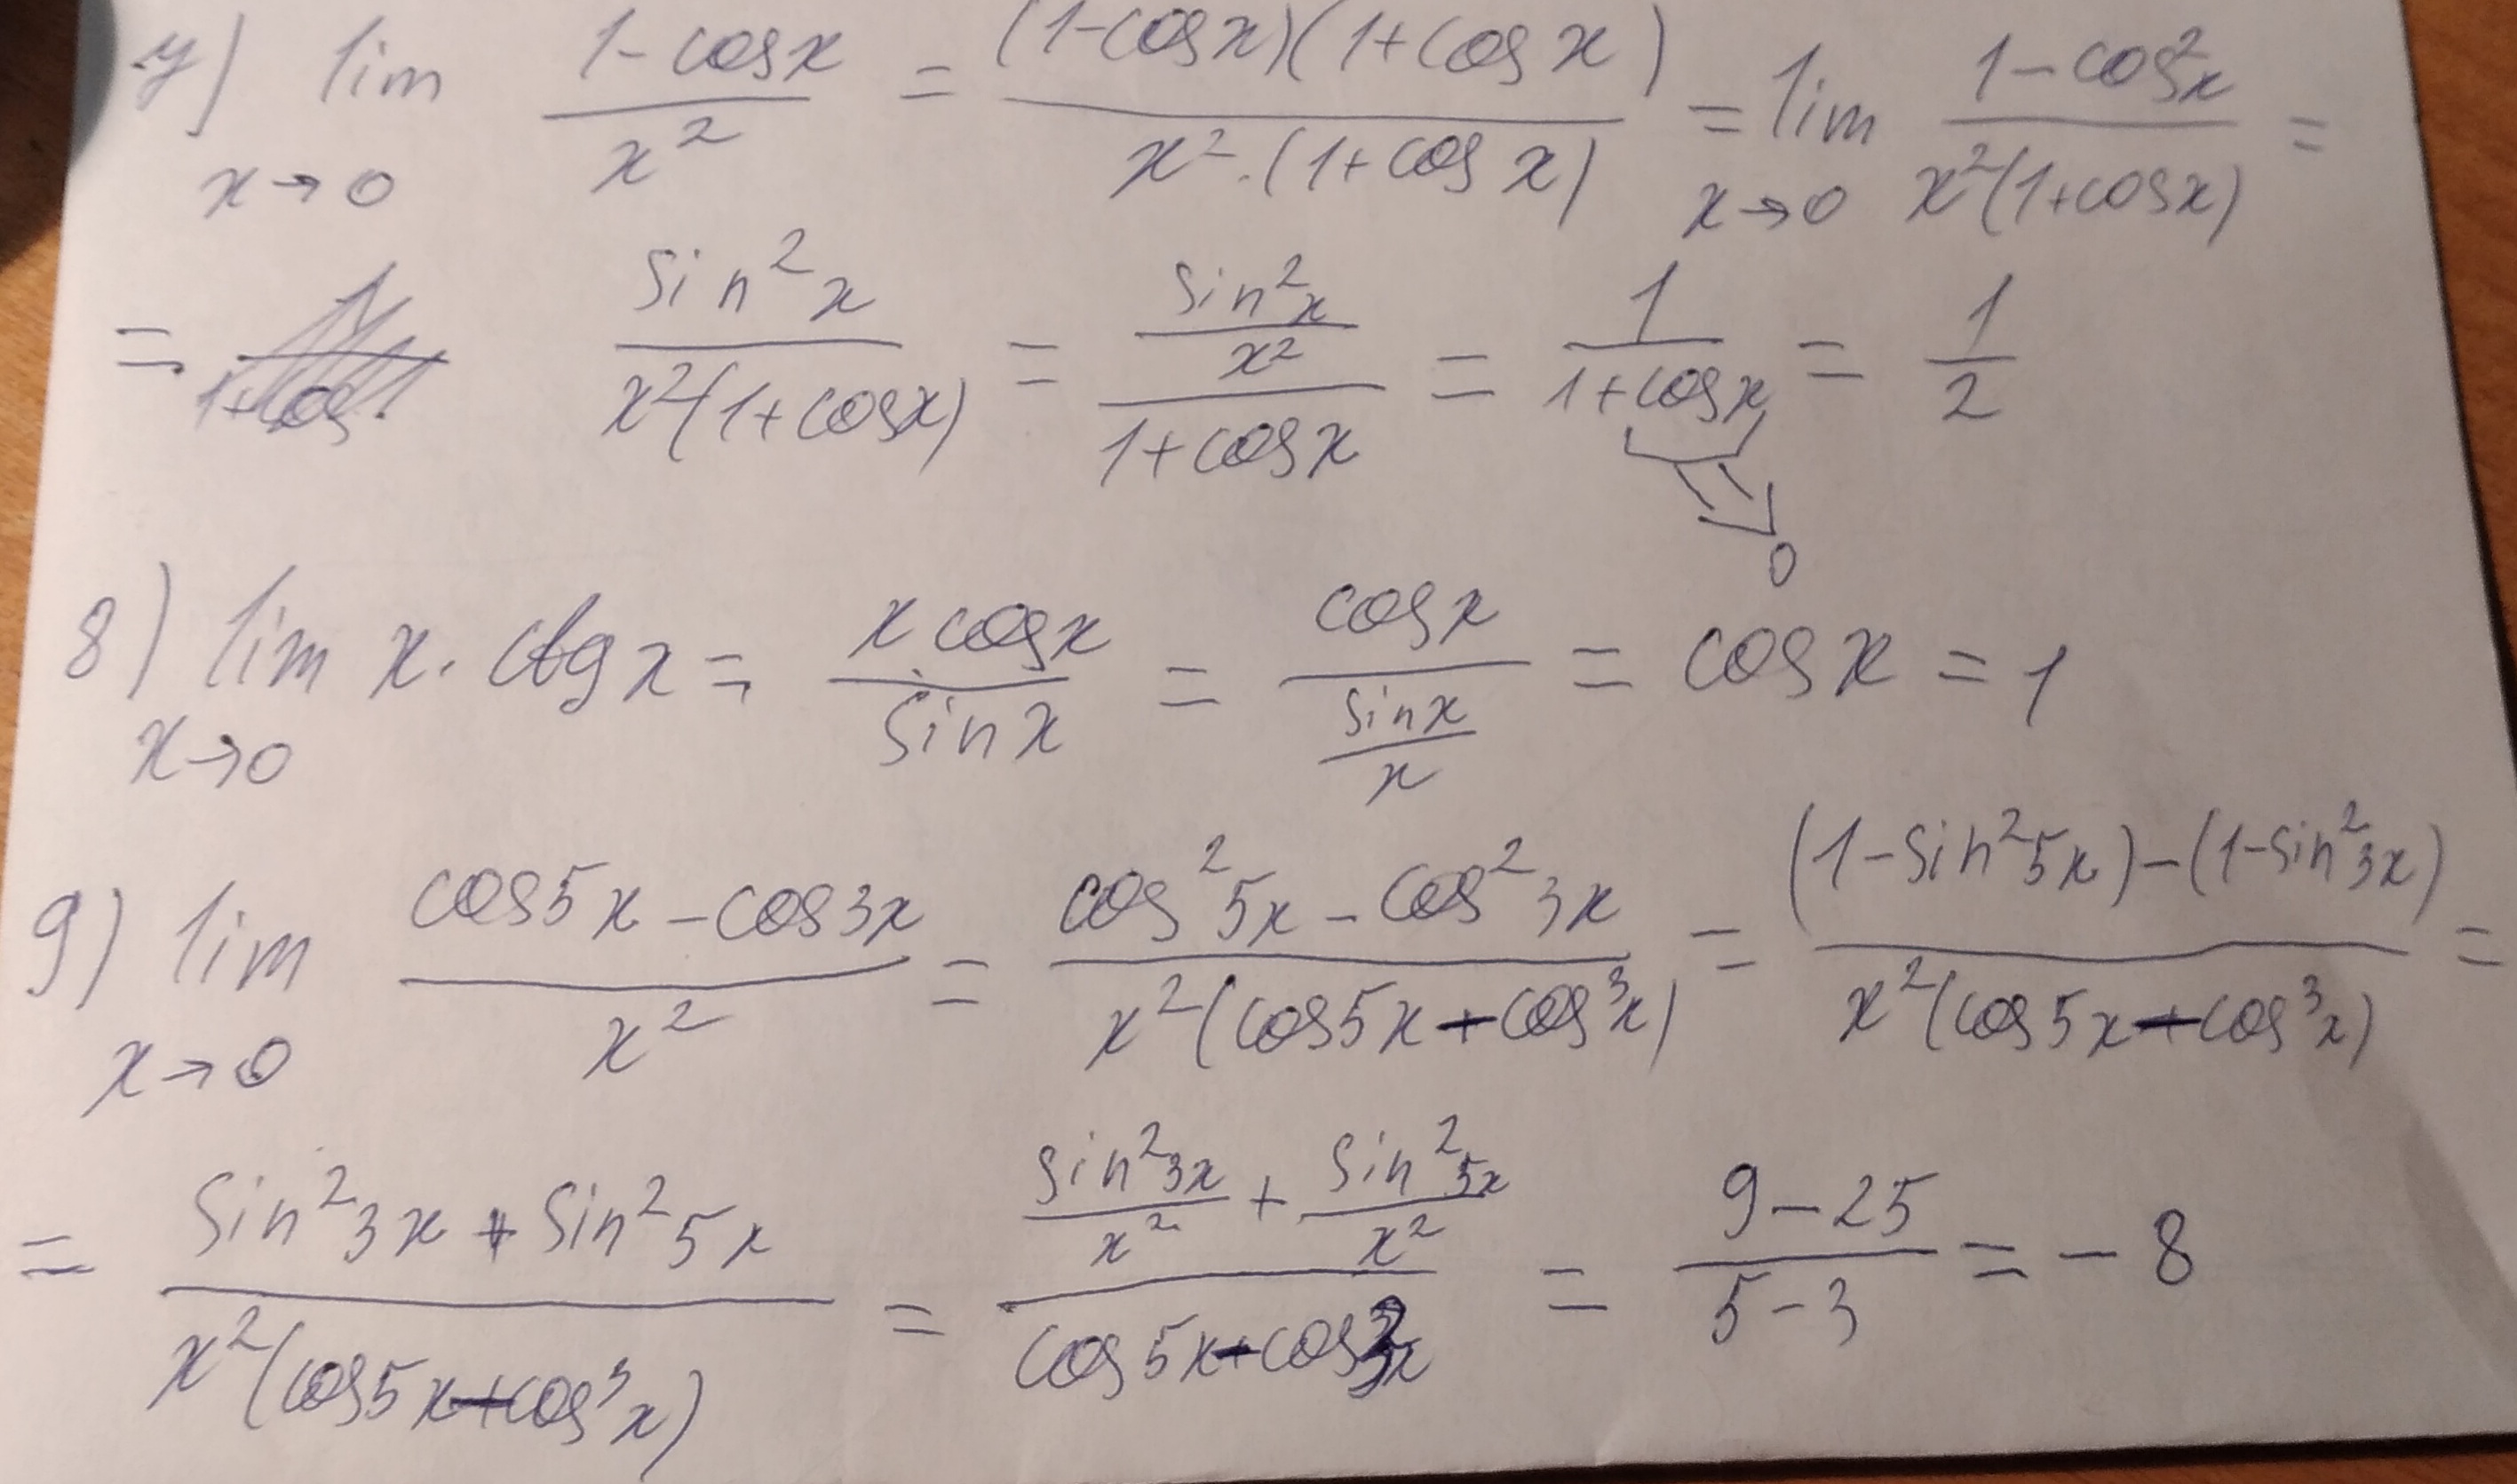 7) lim 1-cosx / x² = (1-cosx)(1+cosx) / x²·(1+cosx) = lim 1-cos²x / x²(1+cosx) =
x→0 x→0
= sin²x / x²(1+cosx) = sin²x/x² / 1+cosx = 1 / 1+cosx = 1/2
0
8) lim x·ctgx = x cosx / sinx = cosx / sinx/x = cosx = 1
x→0
9) lim cos5x-cos3x / x² = cos²5x-cos²3x / x²(cos5x+cos³x) = (1-sin²5x)-(1-sin²3x) / x²(cos5x+cos³x) =
x→0
= sin²3x+sin²5x / x²(cos5x+cos³x) = sin²3x/x² + sin²5x/x² / cos5x+cos3x = 9-25 / 5-3 = -8